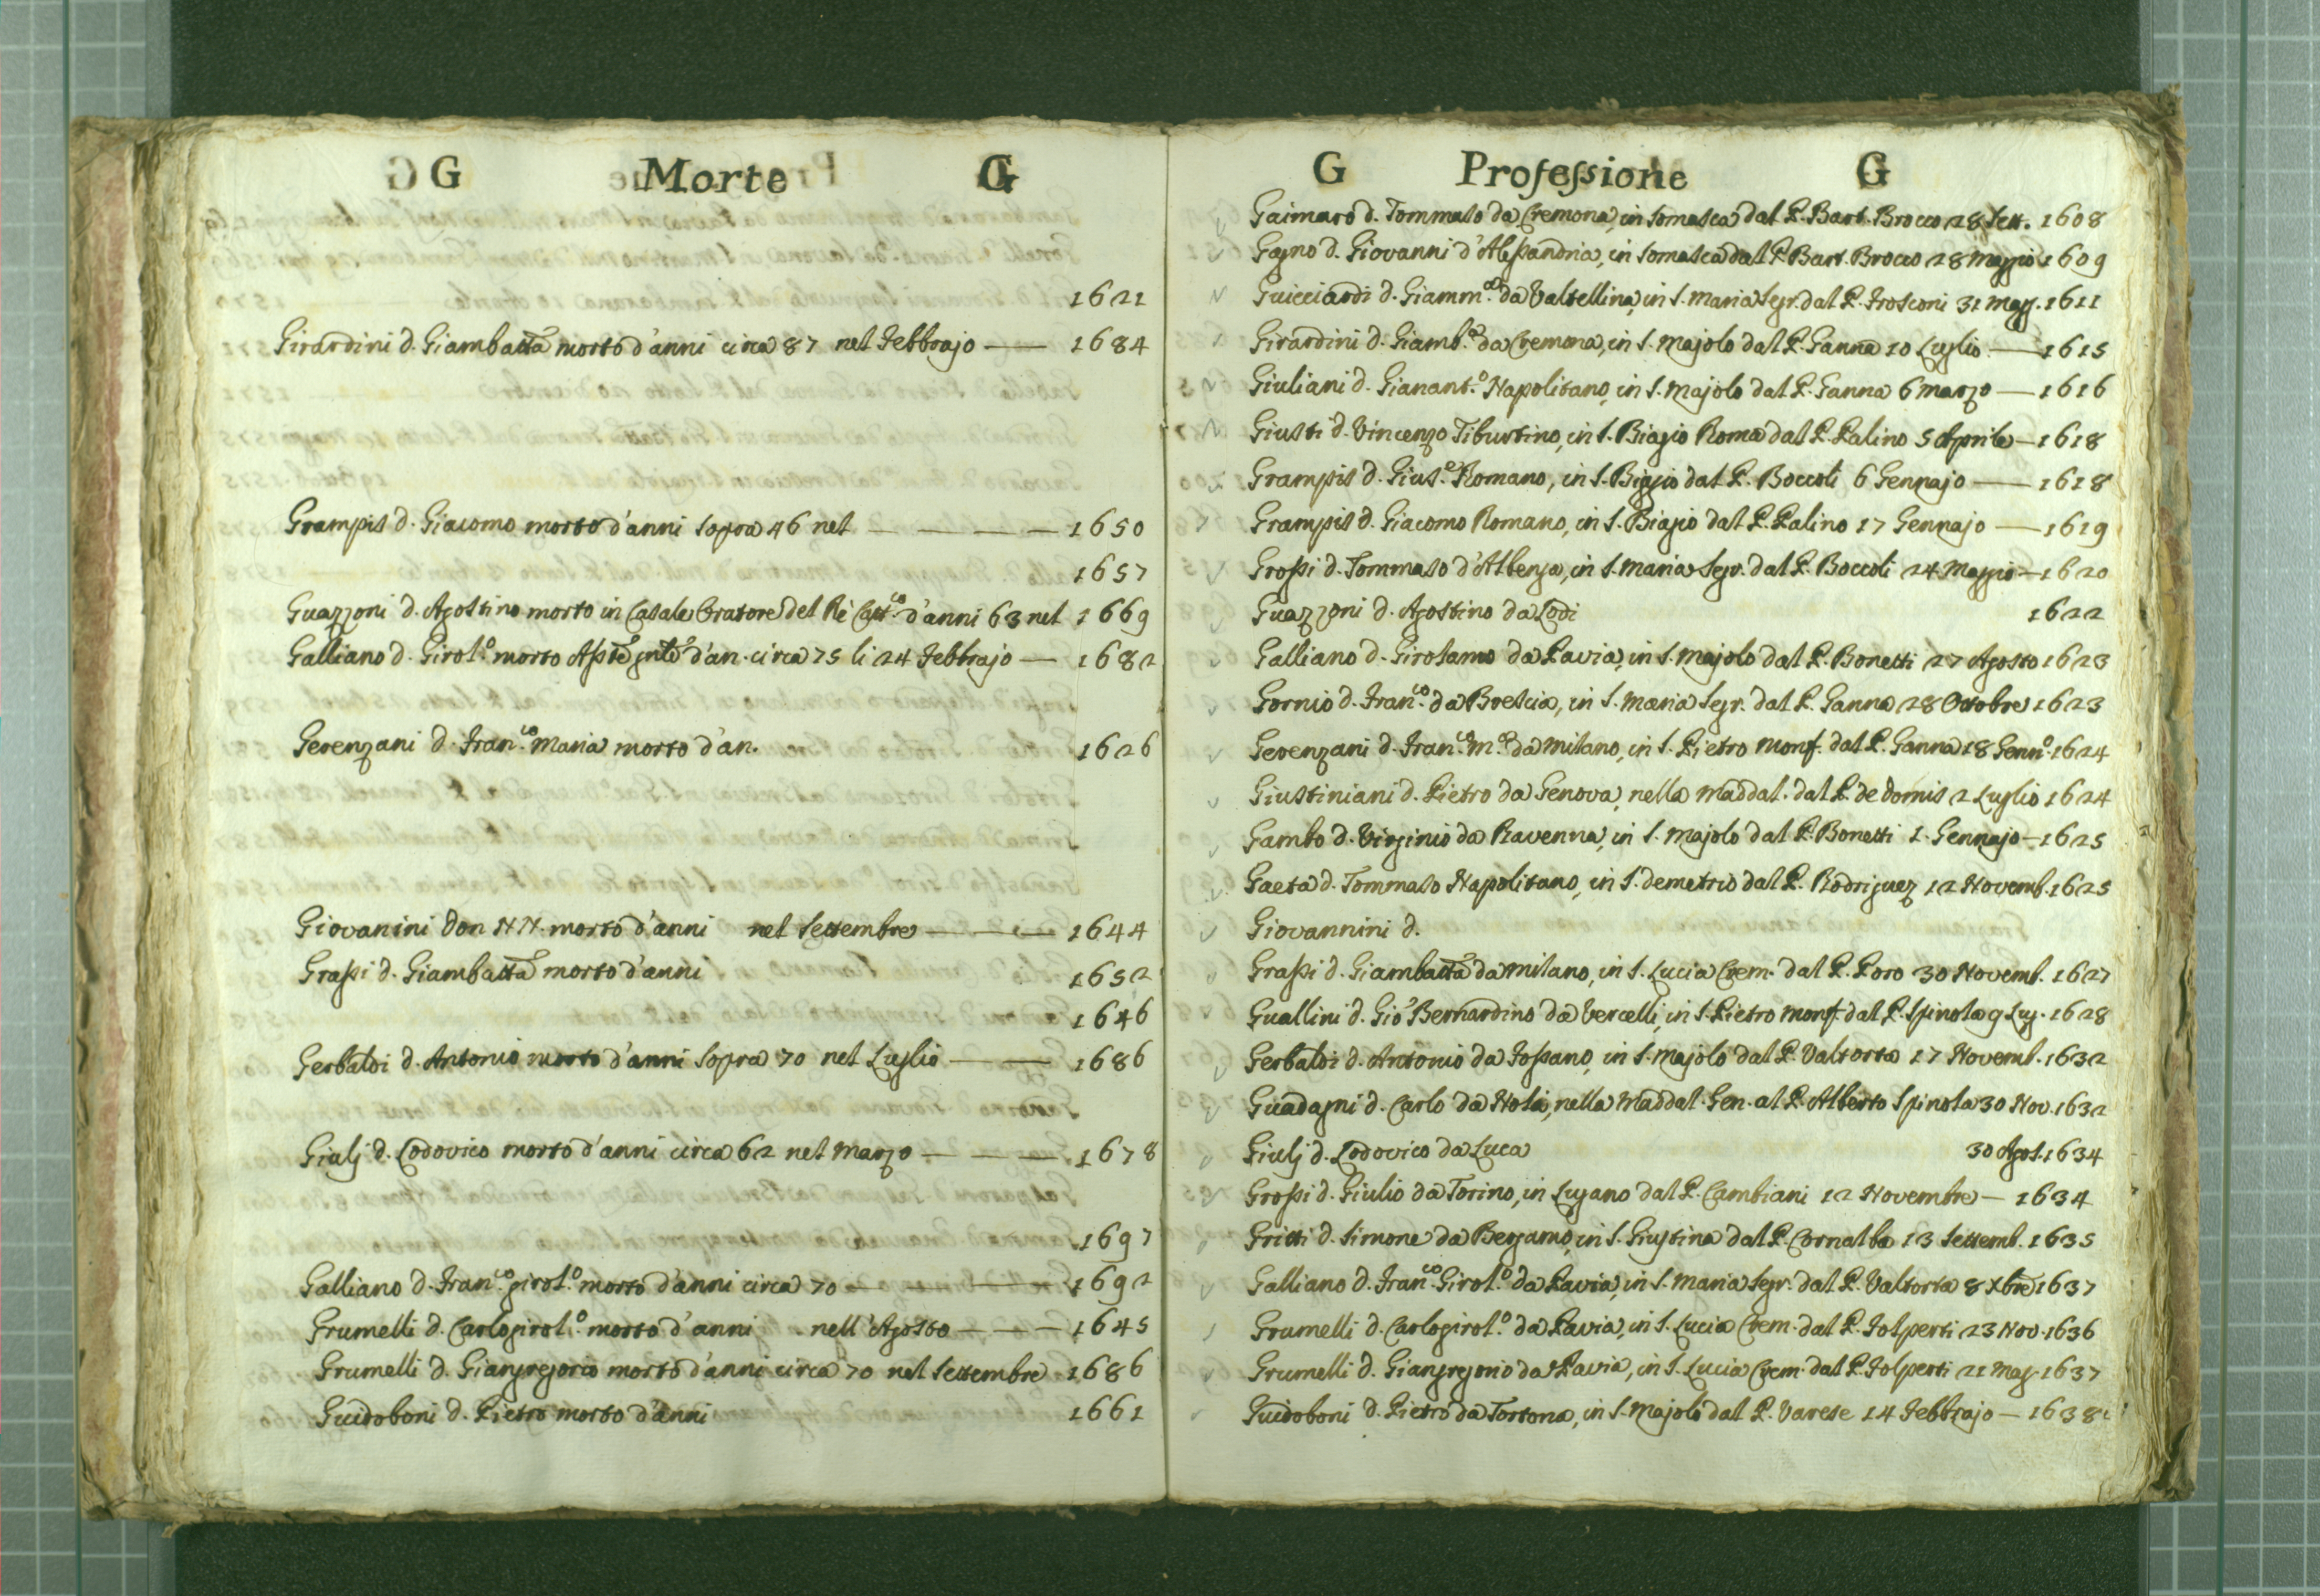 G Morte G
1621
Girardini d. Giambatta morto d'anni circa 87 nel Febbrajo — 1684
Grampis d. Giacomo morto d'anni sopra 46 nel — — — — 1650
1657
Guazzoni d. Agostino morto in Casale Oratore del Rè Catt.co d'anni 63 nel 1669
Galliano d. Girol.o morto d'an. circa 75 li 24 Febbrajo — 1682
Gerenzani d. Fran.co Maria morto d'an. 1626
Giovanini Don NN. morto d'anni nel Settembre — — — 1644
Grassi d. Giambatta morto d'anni 1652
1646
Gerbaldi d. Antonio morto d'anni sopra 70 nel Luglio — — 1686
Giulj d. Lodovico morto d'anni circa 62 nel Marzo — — — 1678
1697
Galliano d. Fran.co girol.o morto d'anni circa 70 — — — 1692
Grumelli d. Carlogirol.o morto d'anni nell'Agosto — — — 1645
Grumelli d. Giangregorio morto d'anni circa 70 nel Settembre 1686
Guidoboni d. Pietro morto d'anni 1661
G Professione G
Gaimaro d. Tommaso da Cremona, in Somasca dal P. Bart. Brocco 28 Sett. 1608
Gagno d. Giovanni d'Alessandria, in Somasca dal P. Bart. Brocco 28 Maggio 1609
Guicciardi d. Giamm.a da Valtellina, in S. Maria Segr. dal P. Frosconi 31 Mag. 1611
Girardini d. Giamb.a da Cremona, in S. Majolo dal P. Ganna 10 Luglio — 1615
Giuliani d. Gianant.o Napolitano, in S. Majolo dal P. Ganna 6 Marzo — 1616
Giusti d. Vincenzo Tiburtino, in S. Biagio Roma dal P. Palino 5 Aprile — 1618
Grampis d. Gius.e Romano, in S. Biagio dal P. Boccoli 6 Gennajo — 1618
Grampis d. Giacomo Romano, in S. Biagio dal P. Palino 17 Gennajo — 1619
Grossi d. Tommaso d'Albenga, in S. Maria Segr. dal P. Boccoli 24 Maggio — 1620
Guazzoni d. Agostino da Lodi 1622
Galliano d. Girolamo da Pavia, in S. Majolo dal P. Bonetti 27 Agosto 1623
Gornio d. Fran.co da Brescia, in S. Maria Segr. dal P. Ganna 28 Ottobre 1623
Gerenzani d. Fran.co M.a da Milano, in S. Pietro Monf. dal P. Ganna 18 Genn.o 1624
Giustiniani d. Pietro da Genova, nella Maddal. dal P. de Domis 2 Luglio 1624
Gambo d. Virginio da Ravenna, in S. Majolo dal P. Bonetti 1. Gennajo — 1625
Gaeta d. Tommaso Napolitano, in S. Demetrio dal P. Rodriguez 12 Novemb. 1625
Giovannini d.
Grassi d. Giambatta da Milano, in S. Lucia Crem. dal P. Poro 30 Novemb. 1627
Guallini d. Gio Bernardino da Vercelli, in S. Pietro Monf. dal P. Spinola 9 Lug. 1628
Gerbaldi d. Antonio da Fossano, in S. Majolo dal P. Valtorta 17 Novemb. 1632
Guadagni d. Carlo da Nola, nella Maddal. Gen. al P. Alberto Spinola 30 Nov. 1632
Giulj d. Lodovico da Luca 30 Agos. 1634
Grossi d. Giulio da Torino, in Lugano dal P. Cambiani 12 Novembre — 1634
Gritti d. Simone da Bergamo, in S. Giustina dal P. Cornalba 13 Settemb. 1635
Galliano d. Fran.co Girol.o da Pavia, in S. Maria Segr. dal P. Valtorta 8 Xbre 1637
Grumelli d. Carlogirol.o da Pavia, in S. Lucia Crem. dal P. Folperti 23 Nov. 1636
Grumelli d. Giangregorio da Pavia, in S. Lucia Crem. dal P. Folperti 21 Mag. 1637
Guidoboni d. Pietro da Tortona, in S. Majolo dal P. Varese 14 Febbrajo — 1638